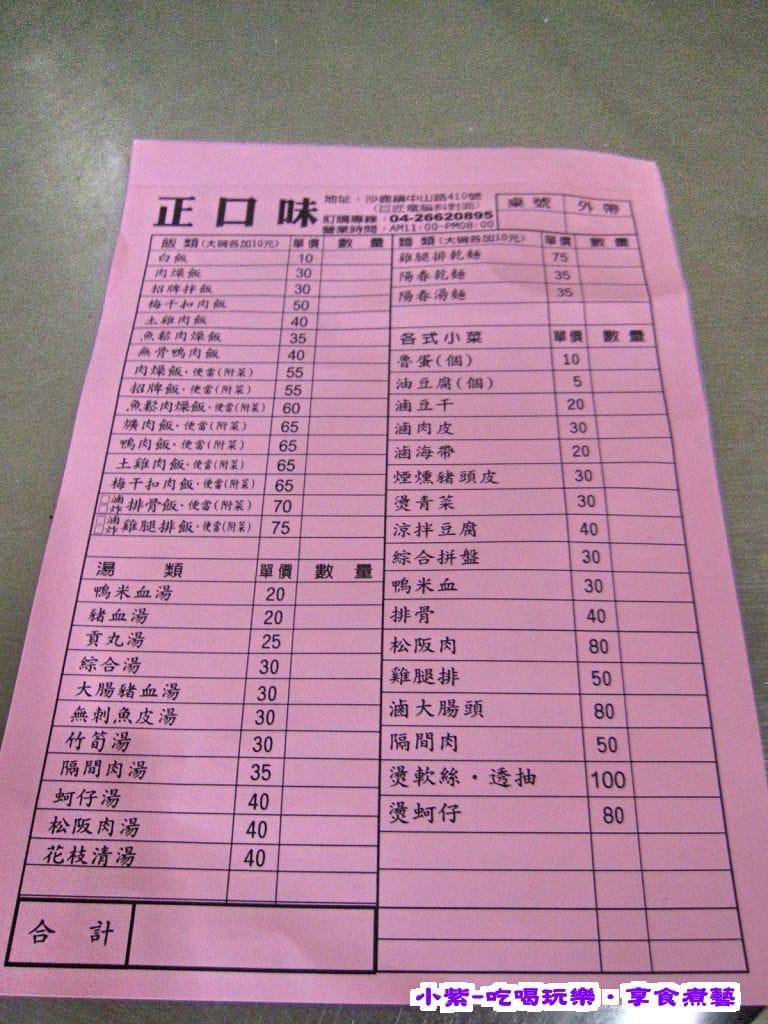 正口味
地址：沙鹿鎮中山路410號
(巨匠電腦斜對面)
訂購專線：04-26620895
營業時間：AM11:00-PM08:00
桌號 外帶
飯 類(大碗各加10元) 單價 數 量
白飯 10
肉燥飯 30
招牌拌飯 30
梅干扣肉飯 50
土雞肉飯 40
魚鬆肉燥飯 35
無骨鴨肉飯 40
肉燥飯·便當(附菜) 55
招牌飯·便當(附菜) 55
魚鬆肉燥飯·便當(附菜) 60
爌肉飯·便當(附菜) 65
鴨肉飯·便當(附菜) 65
土雞肉飯·便當(附菜) 65
梅干扣肉飯·便當(附菜) 65
□滷 □炸 排骨飯·便當(附菜) 70
□滷 □炸 雞腿排飯·便當(附菜) 75
湯 類 單價 數 量
鴨米血湯 20
豬血湯 20
貢丸湯 25
綜合湯 30
大腸豬血湯 30
無刺魚皮湯 30
竹筍湯 30
隔間肉湯 35
蚵仔湯 40
松阪肉湯 40
花枝清湯 40
合 計
麵 類(大碗各加10元) 單價 數 量
雞腿排乾麵 75
陽春乾麵 35
陽春湯麵 35
各式小菜 單價 數 量
魯蛋(個) 10
油豆腐(個) 5
滷豆干 20
滷肉皮 30
滷海帶 20
煙燻豬頭皮 30
燙青菜 30
涼拌豆腐 40
綜合拼盤 30
鴨米血 30
排骨 40
松阪肉 80
雞腿排 50
滷大腸頭 80
隔間肉 50
燙軟絲·透抽 100
燙蚵仔 80
小紫-吃喝玩樂·享食煮藝